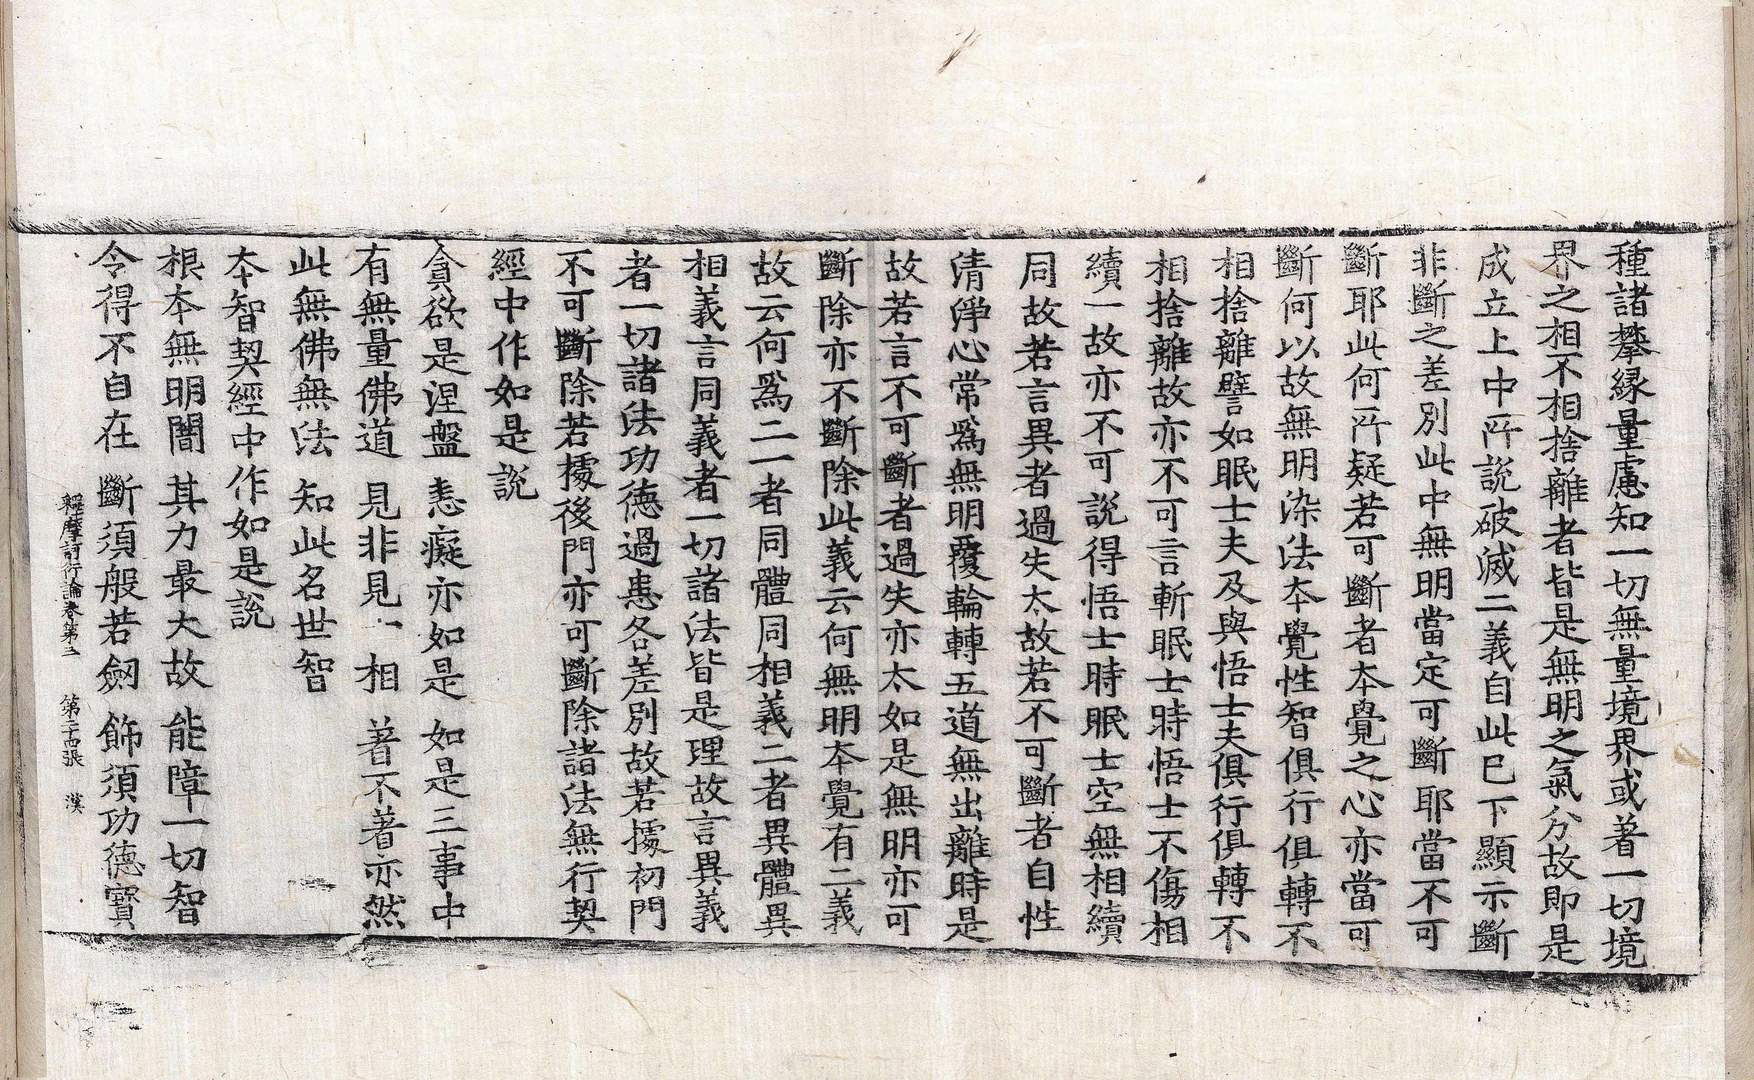 種諸攀縁量慮知一切無量境界或著一切境
界之相不相捨離者皆是無明之氣分故即是
成立上中所說破滅二義自此已下顯示斷
非斷之差別此中無明當定可斷耶當不可
斷耶此何所疑若可斷者本覺之心亦當可
斷何以故無明染法本覺性智俱行俱轉不
相捨離譬如眠士夫及與悟士夫俱行俱轉不
相捨離故亦不可言斬眠士時悟士不傷相
續一故亦不可說得悟士時眠士空無相續
同故若言異者過失太故若不可斷者自性
清淨心常爲無明覆輪轉五道無出離時是
故若言不可斷者過失亦太如是無明亦可
斷除亦不斷除此義云何無明本覺有二義
故云何爲二一者同體同相義二者異體異
相義言同義者一切諸法皆是理故言異義
者一切諸法功德過患各差別故若據初門
不可斷除若據後門亦可斷除諸法無行契
經中作如是說
貪欲是涅盤 恚癡亦如是 如是三事中
有無量佛道 見非見一相 著不著亦然
此無佛無法 知此名世智
本智契經中作如是說
根本無明闇 其力最大故 能障一切智
令得不自在 斷須般若劒 飾須功德寶
釋摩訶衍論卷第三 第二十四張 漢